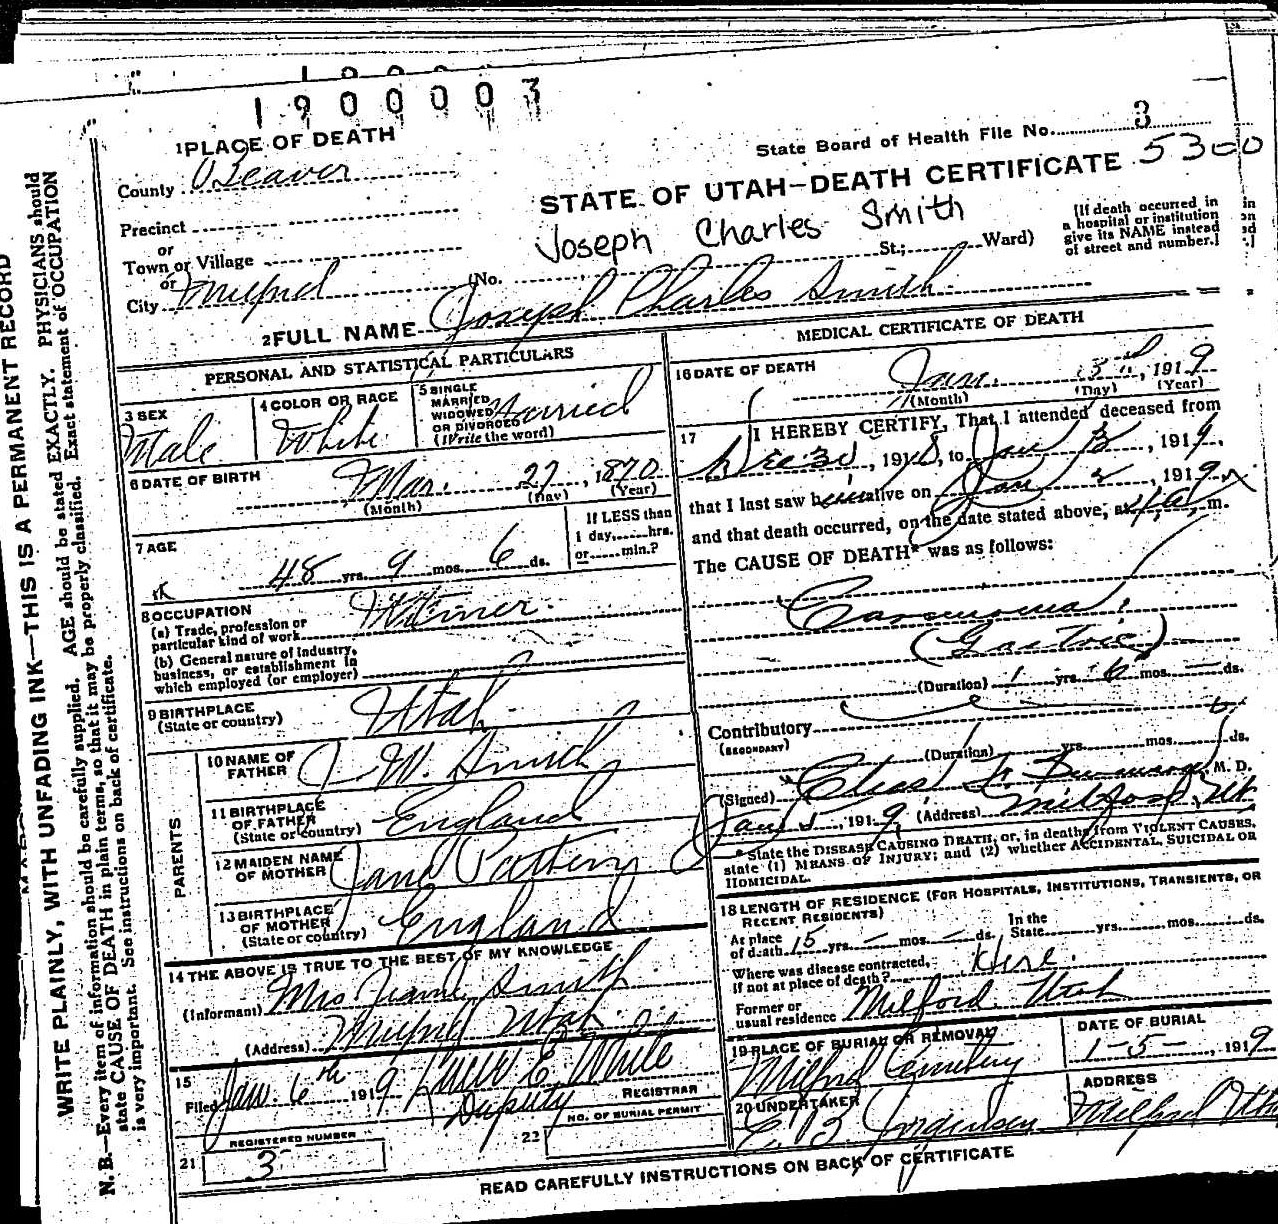 1900003
1 PLACE OF DEATH
State Board of Health File No. 3
County Beaver
5300
STATE OF UTAH—DEATH CERTIFICATE
Precinct
Joseph Charles Smith
or
Town or Village
St.; Ward)
[If death occurred in
a hospital or institution
give its NAME instead
of street and number.]
or
City Milford (No.
2 FULL NAME Joseph Charles Smith
PERSONAL AND STATISTICAL PARTICULARS
3 SEX
Male
4 COLOR OR RACE
White
5 SINGLE
MARRIED
WIDOWED
OR DIVORCED
(Write the word)
Married
6 DATE OF BIRTH
Mar. 27, 1870
(Month) (Day) (Year)
7 AGE
48 yrs. 9 mos. 6 ds.
If LESS than
1 day,......hrs.
or......min.?
8 OCCUPATION
(a) Trade, profession or
particular kind of work
(b) General nature of industry,
business, or establishment in
which employed (or employer)
9 BIRTHPLACE
(State or country)
Utah
PARENTS
10 NAME OF
FATHER
J W. Smith
11 BIRTHPLACE
OF FATHER
(State or country)
England
12 MAIDEN NAME
OF MOTHER
Jane
13 BIRTHPLACE
OF MOTHER
(State or country)
England
14 THE ABOVE IS TRUE TO THE BEST OF MY KNOWLEDGE
(Informant) Mrs Smith
(Address) Milford Utah
15
Filed Jan. 6th 1919 White
Deputy REGISTRAR
REGISTERED NUMBER
21 3
22 NO. OF BURIAL PERMIT
MEDICAL CERTIFICATE OF DEATH
16 DATE OF DEATH
Jan. 3rd, 1919
(Month) (Day) (Year)
17 I HEREBY CERTIFY, That I attended deceased from
Dec 30, 1918, to Jan 3, 1919,
that I last saw him alive on Jan 2, 1919
and that death occurred, on the date stated above, at m.
The CAUSE OF DEATH* was as follows:
Carcinoma
(Gastric)
(Duration) 1 yrs. 6 mos. — ds.
Contributory
(SECONDARY)
(Duration) yrs. mos. ds.
(Signed) M. D.
Jan 1919 (Address) Milford, Ut
* State the DISEASE CAUSING DEATH, or, in deaths from VIOLENT CAUSES,
state (1) MEANS OF INJURY; and (2) whether ACCIDENTAL, SUICIDAL OR
HOMICIDAL.
18 LENGTH OF RESIDENCE (FOR HOSPITALS, INSTITUTIONS, TRANSIENTS, OR
RECENT RESIDENTS)
At place
of death 15 yrs. — mos. — ds.
In the
State yrs. mos. ds.
Where was disease contracted,
if not at place of death? Here.
Former or
usual residence Milford Utah
19 PLACE OF BURIAL OR REMOVAL
Milford Cemetery
DATE OF BURIAL
1-5-, 1919
20 UNDERTAKER
C. B. Jorgensen
ADDRESS
Milford Utah
READ CAREFULLY INSTRUCTIONS ON BACK OF CERTIFICATE
WRITE PLAINLY, WITH UNFADING INK—THIS IS A PERMANENT RECORD
N. B.—Every item of information should be carefully supplied. AGE should be stated EXACTLY. PHYSICIANS should
state CAUSE OF DEATH in plain terms, so that it may be properly classified. Exact statement of OCCUPATION
is very important. See instructions on back of certificate.